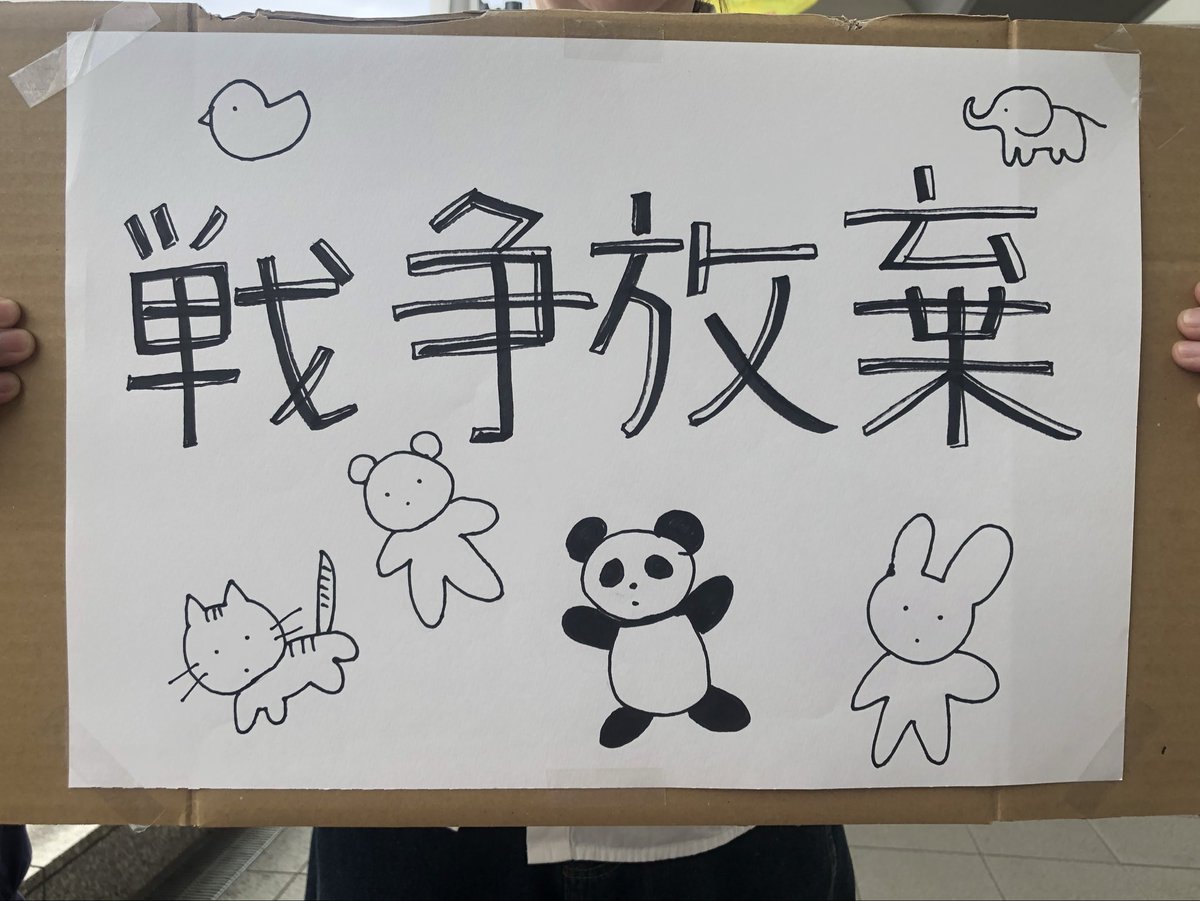 戦争放棄